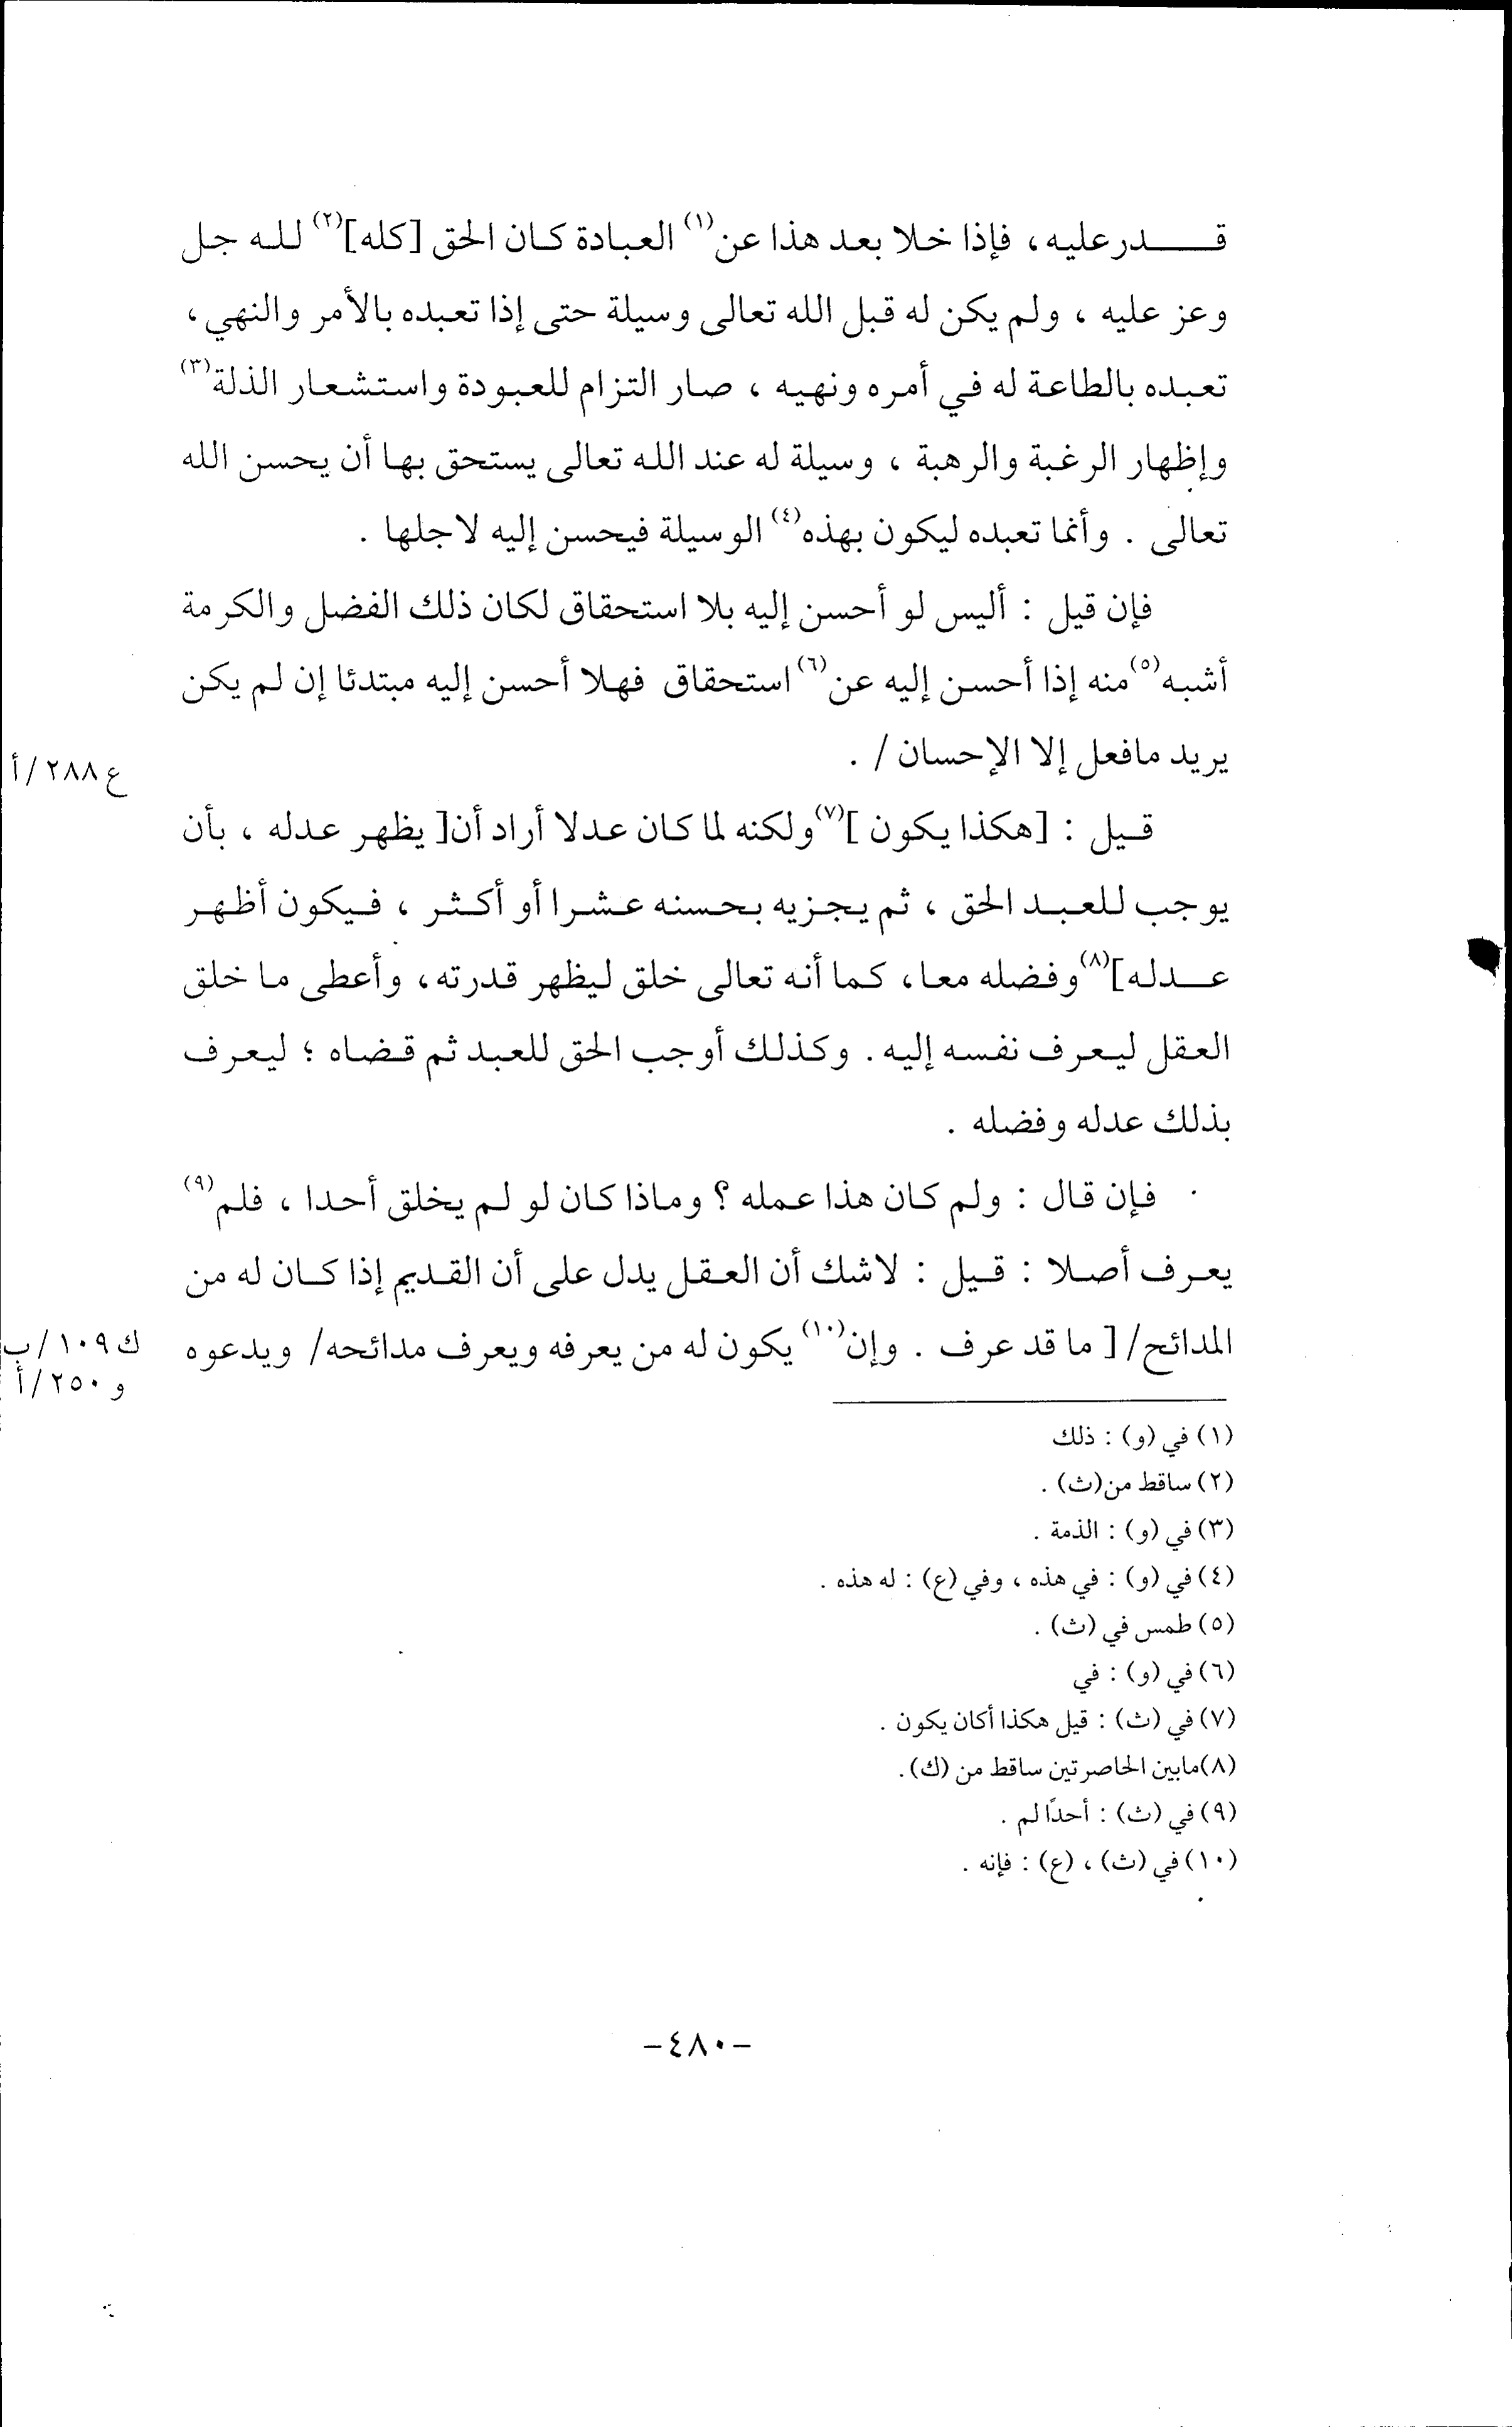 قـــدر عليه، فإذا خلا بعد هذا عن(١) العبادة كان الحق [كله](٢) لله جل
وعز عليه ، ولم يكن له قبل الله تعالى وسيلة حتى إذا تعبده بالأمر والنهي،
تعبده بالطاعة له في أمره ونهيه ، صار التزام للعبودة واستشعار الذلة(٣)
وإظهار الرغبة والرهبة ، وسيلة له عند الله تعالى يستحق بها أن يحسن الله
تعالى . وأنما تعبده ليكون بهذه(٤) الوسيلة فيحسن إليه لاجلها .
فإن قيل : أليس لو أحسن إليه بلا استحقاق لكان ذلك الفضل والكرمة
أشبه(٥) منه إذا أحسن إليه عن(٦) استحقاق فهلا أحسن إليه مبتدئا إن لم يكن
يريد مافعل إلا الإحسان / .
ع ٢٨٨/أ
قيل : [هكذا يكون ](٧) ولكنه لما كان عدلا أراد أن[ يظهر عدله ، بأن
يوجب للعبد الحق ، ثم يجزيه بحسنه عشرا أو أكثر ، فيكون أظهر
عدله](٨) وفضله معا، كما أنه تعالى خلق ليظهر قدرته، وأعطى ما خلق
العقل ليعرف نفسه إليه . وكذلك أوجب الحق للعبد ثم قضاه ؛ ليعرف
بذلك عدله وفضله .
فإن قال : ولم كان هذا عمله ؟ وماذا كان لو لم يخلق أحدا ، فلم(٩)
يعرف أصلا : قيل : لاشك أن العقل يدل على أن القديم إذا كان له من
المدائح/ [ ما قد عرف . وإن(١٠) يكون له من يعرفه ويعرف مدائحه/ ويدعوه
ك ١٠٩/ب
و ٢٥٠/أ
(١) في (و) : ذلك
(٢) ساقط من(ث) .
(٣) في (و) : الذمة .
(٤) في (و) : في هذه ، وفي (ع) : له هذه .
(٥) طمس في (ث) .
(٦) في (و) : في
(٧) في (ث) : قيل هكذا أكان يكون .
(٨)مابين الحاصرتين ساقط من (ك).
(٩) في (ث) : أحدًا لم .
(١٠) في (ث) ، (ع) : فإنه .
-٤٨٠-